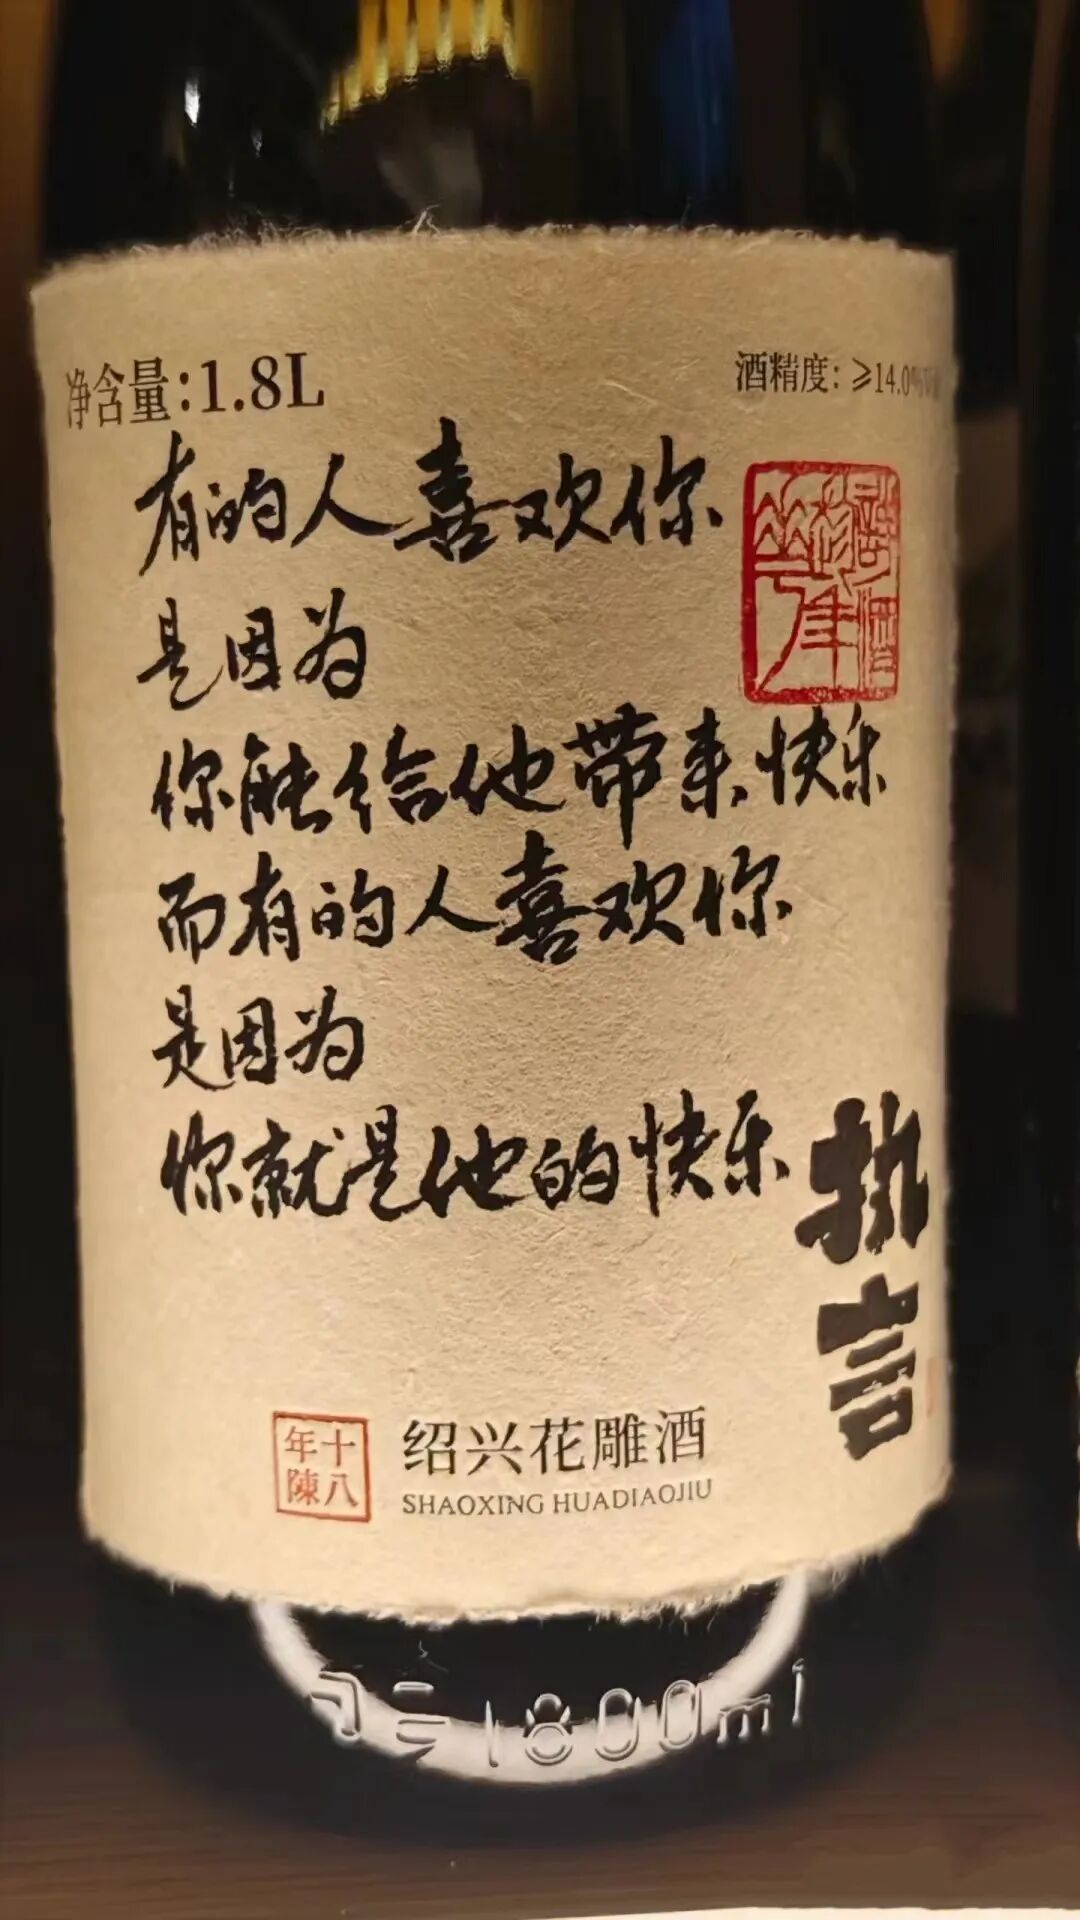 净含量:1.8L
酒精度:≥14.0%
有的人喜欢你
是因为
你能给他带来快乐
而有的人喜欢你
是因为
你就是他的快乐
执言
十八年陳
绍兴花雕酒
SHAOXING HUADIAOJIU
1800ml